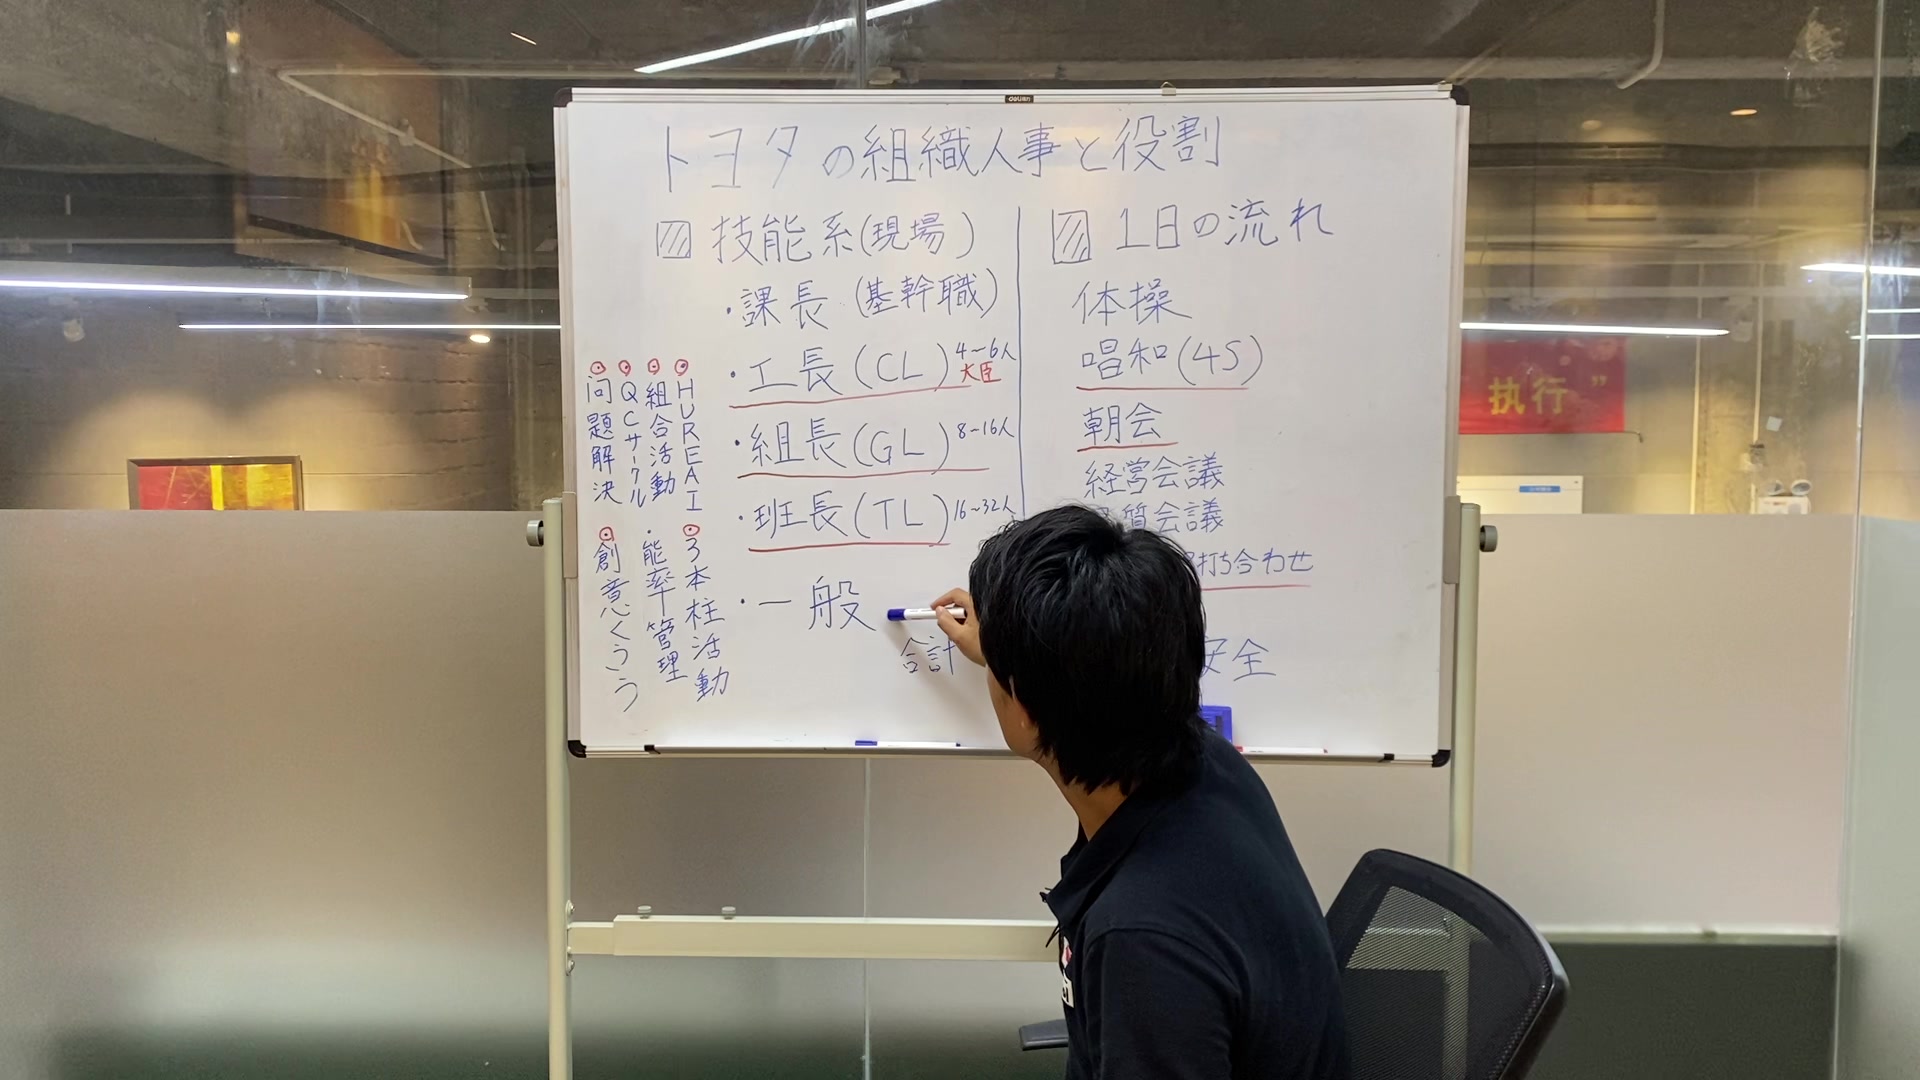 トヨタの組織人事と役割
技能系(現場)
・課長(基幹職)
・工長(CL) 4~6人
大臣
・組長(GL) 8~16人
・班長(TL) 16~32人
・一般
合計
HUREAI
組合活動
QCサークル
问題解決
3本柱活動
・能率管理
創意くうう
1日の流れ
体操
唱和(4S)
朝会
経営会議
質会議
打ち合わせ
安全
执行”
deli